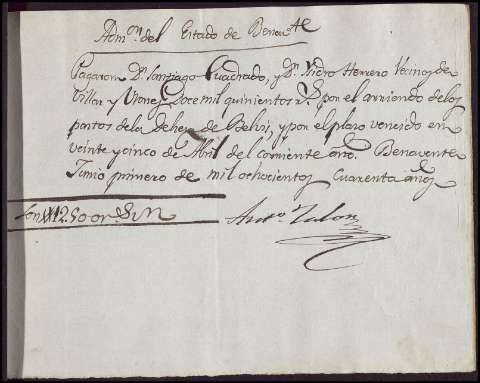 Adm.on del Estado de Benav.te
Pagaron D.n Santiago Cuadrado, y D.n Ysidro Herrero Vecinos de
Villar y Doce mil quinientos r.s por el arriendo de los
pastos de la Dehesa de Belvis, y por el plazo vencido en
veinte y cinco de Abril del corriente año. Benavente
Junio primero de mil ochocientos Cuarenta años
Son 12.500 r.s v.n
Ant.o Talon